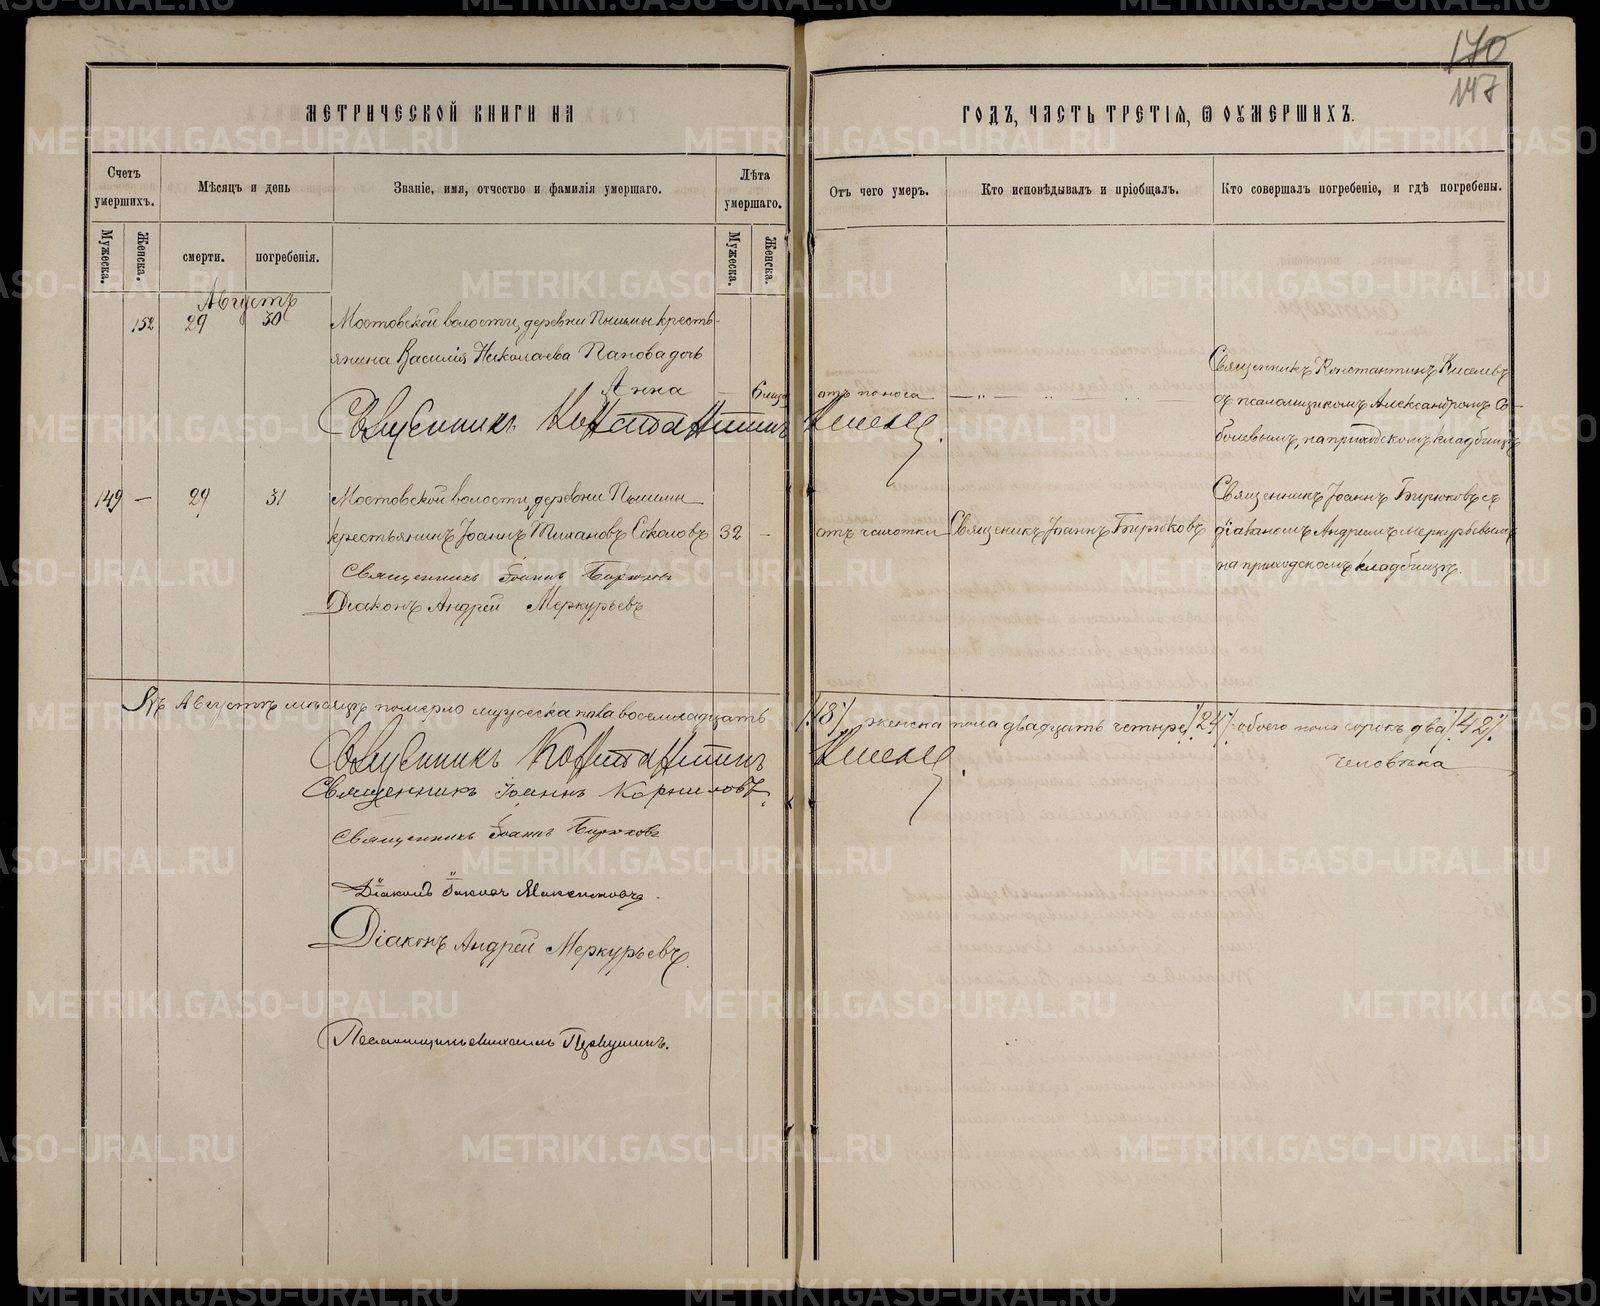 170
147
МЕТРИЧЕСКОЙ КНИГИ НА
ГОДЪ, ЧАСТЬ ТРЕТІЯ, Ѿ ОУМЕРШИХЪ.
Счетъ умершихъ.
Мѣсяцъ и день
Званіе, имя, отчество и фамилія умершаго.
Лѣта умершаго.
Отъ чего умеръ.
Кто исповѣдывалъ и пріобщалъ.
Кто совершалъ погребеніе, и гдѣ погребены.
Мужеска.
Женска.
смерти.
погребенія.
Мужеска.
Женска.
Августъ
152 29 30 Мостовской волости, деревни Пышмы кресть-
янина Василія Николаева Папова дочь
Анна — 6 отъ поноса — „ —
Священникъ Константинъ Киселевъ
съ псаломщикомъ Александромъ Со-
болевымъ, на приходскомъ кладбищѣ
Священникъ Константинъ Киселевъ.
149 — 29 31 Мостовской волости, деревни Пышмы
крестьянинъ Іоаннъ Соколовъ 32 — отъ чахотки Священикъ Іоаннъ Бирюковъ
Священникъ Іоаннъ Бирюковъ съ
діакономъ Андреемъ Меркурьевымъ
на приходскомъ кладбищѣ.
Священникъ Іоаннъ Бирюковъ
Діаконъ Андрей Меркурьевъ
Въ Августѣ мѣсяцѣ померло мужеска пола восемнадцать /18/, женска пола двадцать четыре /24/ обоего пола сорокъ два /42/
человѣка
Священникъ Константинъ Киселевъ.
Священникъ Іоаннъ Корниловъ.
Священникъ Іоаннъ Бирюковъ
Діаконъ Іаковъ Максимовъ.
Діаконъ Андрей Меркурьевъ.
Псаломщикъ Михаилъ Первушинъ.
METRIKI.GASO-URAL.RU